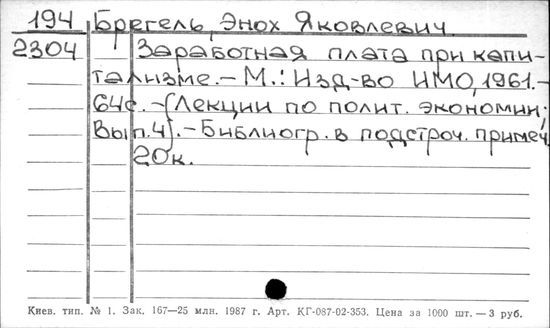 194 Брегель, Энох Яковлевич.
2304 Заработная плата при капи-
тализме.- М.: Изд-во ИМО, 1961.-
64с.-(Лекции по полит. экономии;
Вып.4).-Библиогр. в подстроч. примеч.
20к.
Киев. тип. № 1. Зак. 167—25 млн. 1987 г. Арт. КГ-087-02-353. Цена за 1000 шт. — 3 руб.